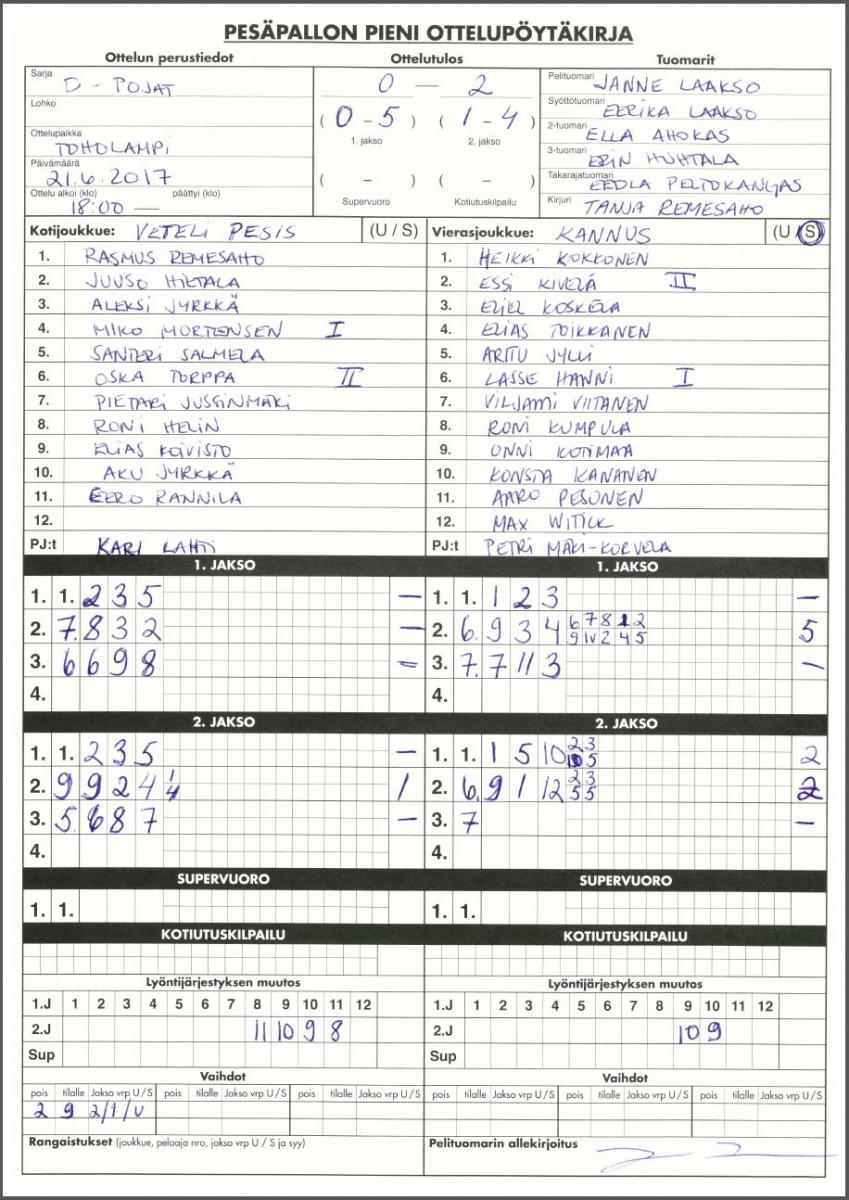 PESÄPALLON PIENI OTTELUPÖYTÄKIRJA
Ottelun perustiedot Ottelutulos Tuomarit
Sarja D - POJAT
Lohko
Ottelupaikka TOHOLAMPI
Päivämäärä 21.6.2017
Ottelu alkoi (klo) 18:00 päättyi (klo) —
0 — 2
( 0 - 5 ) ( 1 - 4 )
1. jakso 2. jakso
( – ) ( – )
Supervuoro Kotiutuskilpailu
Pelituomari JANNE LAAKSO
Syöttötuomari EERIKA LAAKSO
2-tuomari ELLA AHOKAS
3-tuomari ERIN HUHTALA
Takarajatuomari EEDLA PELTOKANGAS
Kirjuri TANJA REMESAHO
Kotijoukkue: VETELI PESIS (U / S)
1. RASMUS REMESAHO
2. JUUSO HIETALA
3. ALEKSI JYRKKÄ
4. MIKO MORTENSEN I
5. SANTERI SALMELA
6. OSKA TORPPA II
7. PIETARI JUSSINMÄKI
8. RONI HELIN
9. ELIAS KOIVISTO
10. AKU JYRKKÄ
11. EERO RANNILA
12.
PJ:t KARI LAHTI
Vierasjoukkue: KANNUS (U / S)
1. HEIKKI KOKKONEN
2. ESSI KIVELÄ II
3. ELIEL KOSKELA
4. ELIAS TOIKKANEN
5. ARTTU JYLLI
6. LASSE HANNI I
7. VILJAMI VIITANEN
8. RONI KUMPULA
9. ONNI KOTIMAA
10. KONSTA KANANEN
11. AARO PESONEN
12. MAX WITICK
PJ:t PETRI MÄKI-KORVELA
1. JAKSO
1. 1. 2 3 5 —
2. 7. 8 3 2 —
3. 6 6 9 8 —
4.
1. JAKSO
1. 1. 1 2 3 —
2. 6. 9 3 4 6 7 8 1 2 5
9 10 2 4 5
3. 7. 7 11 3 —
4.
2. JAKSO
1. 1. 2 3 5 —
2. 9 9 2 4 1 1
4
3. 5. 6 8 7 —
4.
2. JAKSO
1. 1. 1 5 10 2 3 2
10 5
2. 6. 9 1 12 2 3 2
5 5
3. 7 —
4.
SUPERVUORO SUPERVUORO
1. 1. 1. 1.
KOTIUTUSKILPAILU KOTIUTUSKILPAILU
Lyöntijärjestyksen muutos Lyöntijärjestyksen muutos
1.J 1 2 3 4 5 6 7 8 9 10 11 12 1.J 1 2 3 4 5 6 7 8 9 10 11 12
2.J 11 10 9 8 2.J 10 9
Sup Sup
Vaihdot Vaihdot
pois tilalle Jakso vrp U / S pois tilalle Jakso vrp U / S pois tilalle Jakso vrp U / S pois tilalle Jakso vrp U / S pois tilalle Jakso vrp U / S pois tilalle Jakso vrp U / S
2 9 2/1/U
Rangaistukset (joukkue, pelaaja nro, jakso vrp U / S ja syy) Pelituomarin allekirjoitus